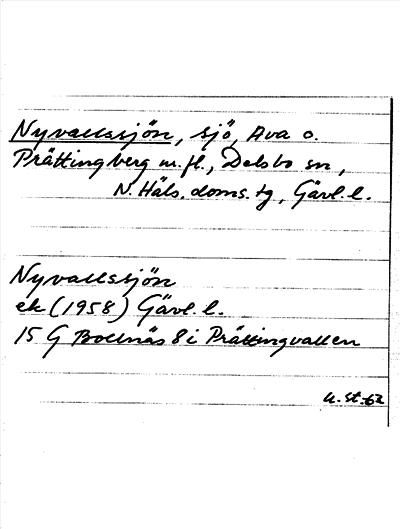 Nyvallssjön, sjö, Ava o.
Prättingberg m.fl., Delsbo sn,
N. Häls. doms. tg, Gävl. l.
Nyvallssjön
ek (1958) Gävl. l.
15 G Bollnäs 8 i Prättingvallen
U. St. 62